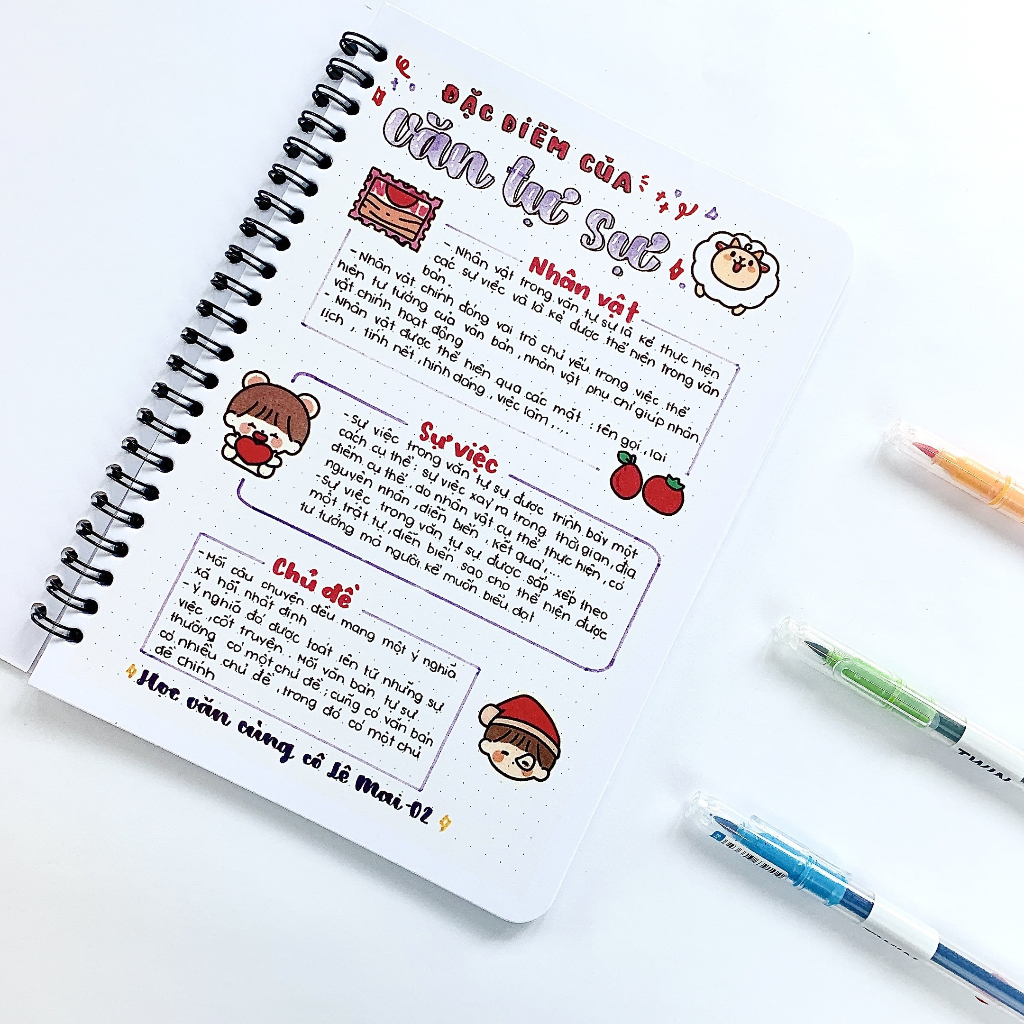 ĐẶC ĐIỂM CỦA
văn tự sự
Nhân vật
- Nhân vật trong văn tự sự là kẻ thực hiện
các sự việc và là kẻ được thể hiện trong văn
bản.
- Nhân vật chính đóng vai trò chủ yếu trong việc thể
hiện tư tưởng của văn bản, nhân vật phụ chỉ giúp nhân
vật chính hoạt động
- Nhân vật được thể hiện qua các mặt: tên gọi, lai
lịch, tính nết, hình dáng, việc làm,...
Sự việc
- Sự việc trong văn tự sự được trình bày một
cách cụ thể: sự việc xảy ra trong thời gian, địa
điểm cụ thể, do nhân vật cụ thể thực hiện, có
nguyên nhân, diễn biến, kết quả,...
- Sự việc trong văn tự sự được sắp xếp theo
một trật tự, diễn biến sao cho thể hiện được
tư tưởng mà người kể muốn biểu đạt
Chủ đề
- Mỗi câu chuyện đều mang một ý nghĩa
xã hội nhất định
- ý nghĩa đó được toát lên từ những sự
việc, cốt truyện. Mỗi văn bản tự sự
thường có một chủ đề; cũng có văn bản
có nhiều chủ đề, trong đó có một chủ
đề chính
Học văn cùng cô Lê Mai-02
TWIN